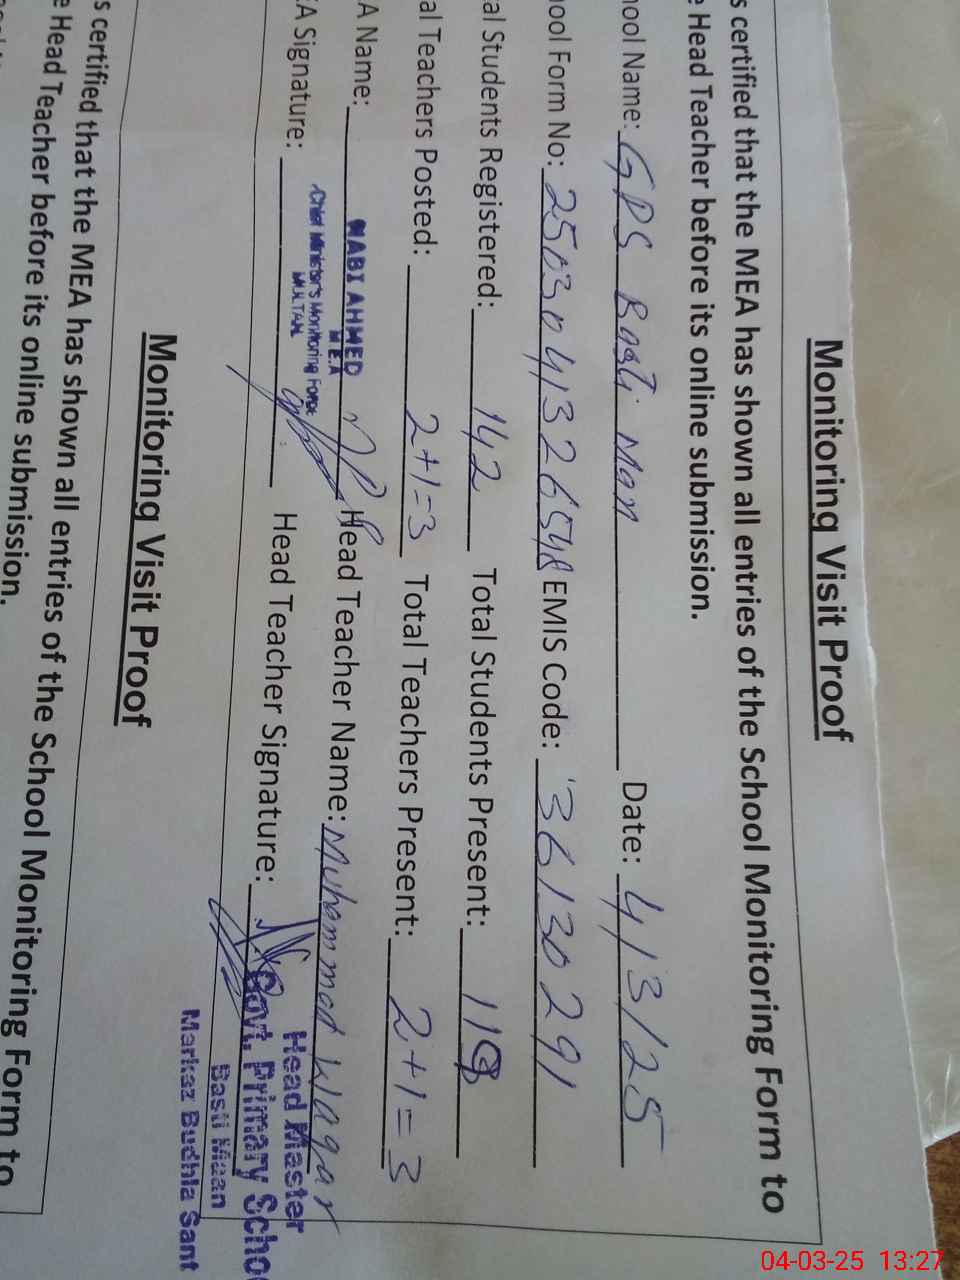 Monitoring Visit Proof
s certified that the MEA has shown all entries of the School Monitoring Form to
e Head Teacher before its online submission.
ool Name: GPS Basti Man Date: 4/3/25
ool Form No: 2503041326548 EMIS Code: 36130291
al Students Registered: 142 Total Students Present: 118
al Teachers Posted: 2+1=3 Total Teachers Present: 2+1=3
A Name: NABI AHMED Head Teacher Name: Muhammad Waqar
M.E.A
Chief Minister's Monitoring Force
MULTAN
EA Signature: Head Teacher Signature:
Head Master
Govt. Primary Schoo
Basti Maan
Markaz Budhla Sant
Monitoring Visit Proof
s certified that the MEA has shown all entries of the School Monitoring Form to
e Head Teacher before its online submission.
04-03-25 13:27